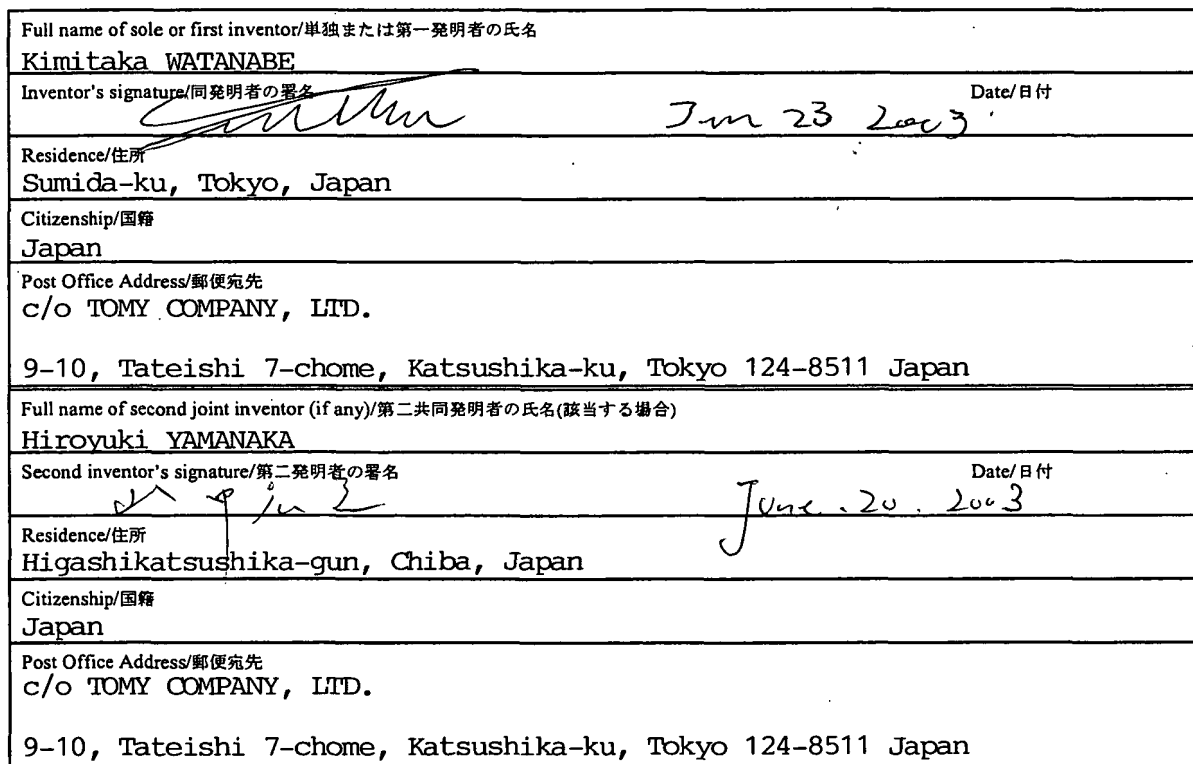 Full name of sole or first inventor/単独または第一発明者の氏名
Kimitaka WATANABE
Inventor's signature/同発明者の署名 Date/日付
Jun 23 2003
Residence/住所
Sumida-ku, Tokyo, Japan
Citizenship/国籍
Japan
Post Office Address/郵便宛先
c/o TOMY COMPANY, LTD.
9-10, Tateishi 7-chome, Katsushika-ku, Tokyo 124-8511 Japan
Full name of second joint inventor (if any)/第二共同発明者の氏名(該当する場合)
Hiroyuki YAMANAKA
Second inventor's signature/第二発明者の署名 Date/日付
June. 20. 2003
Residence/住所
Higashikatsushika-gun, Chiba, Japan
Citizenship/国籍
Japan
Post Office Address/郵便宛先
c/o TOMY COMPANY, LTD.
9-10, Tateishi 7-chome, Katsushika-ku, Tokyo 124-8511 Japan